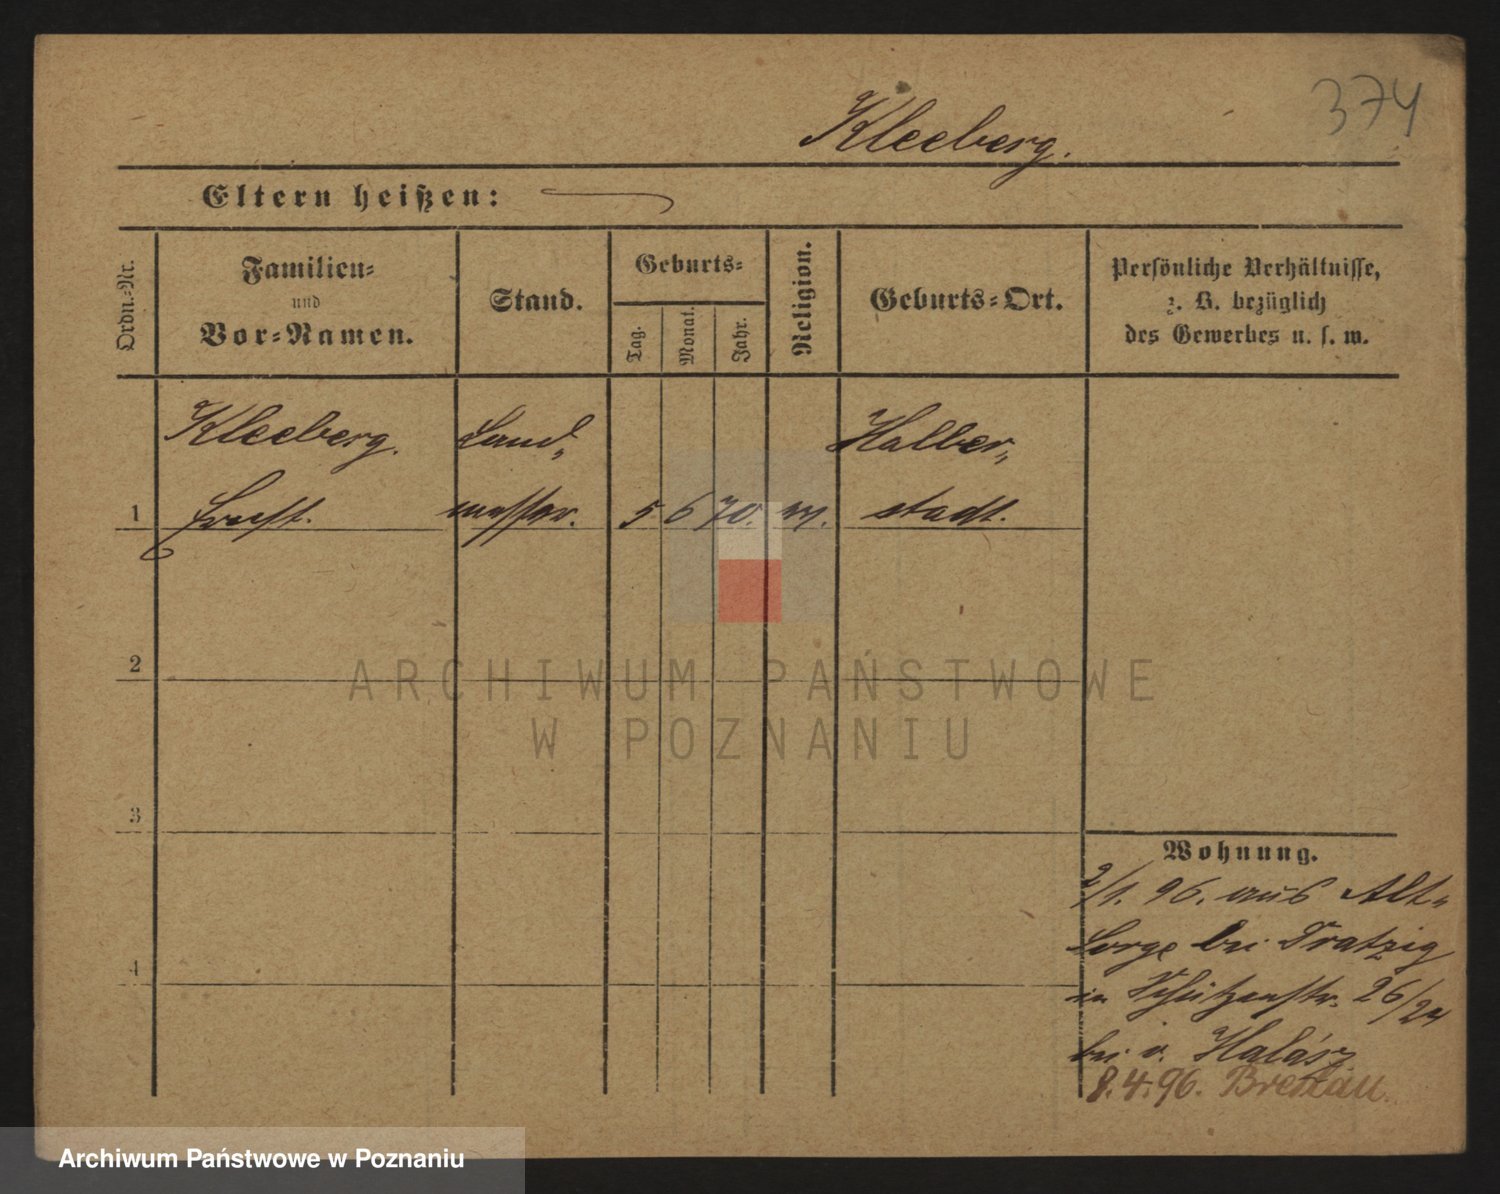 374
Kleeberg.
Eltern heißen:
Ordn.-Nr.
Familien-
und
Vor-Namen.
Stand.
Geburts-
Tag.
Monat.
Jahr.
Religion.
Geburts-Ort.
Persönliche Verhältnisse,
z. B. bezüglich
des Gewerbes u. s. w.
Kleeberg. Land- Halber-
1 Ernst. messer. 5 6 70. stadt.
2
3
4
ARCHIWUM PAŃSTWOWE
W POZNANIU
Wohnung.
2/1. 96. aus Alt-
Sorge bei Tratzig
in Schützenstr. 26/27
bei v. Halász
8.4.96. Breslau.
Archiwum Państwowe w Poznaniu